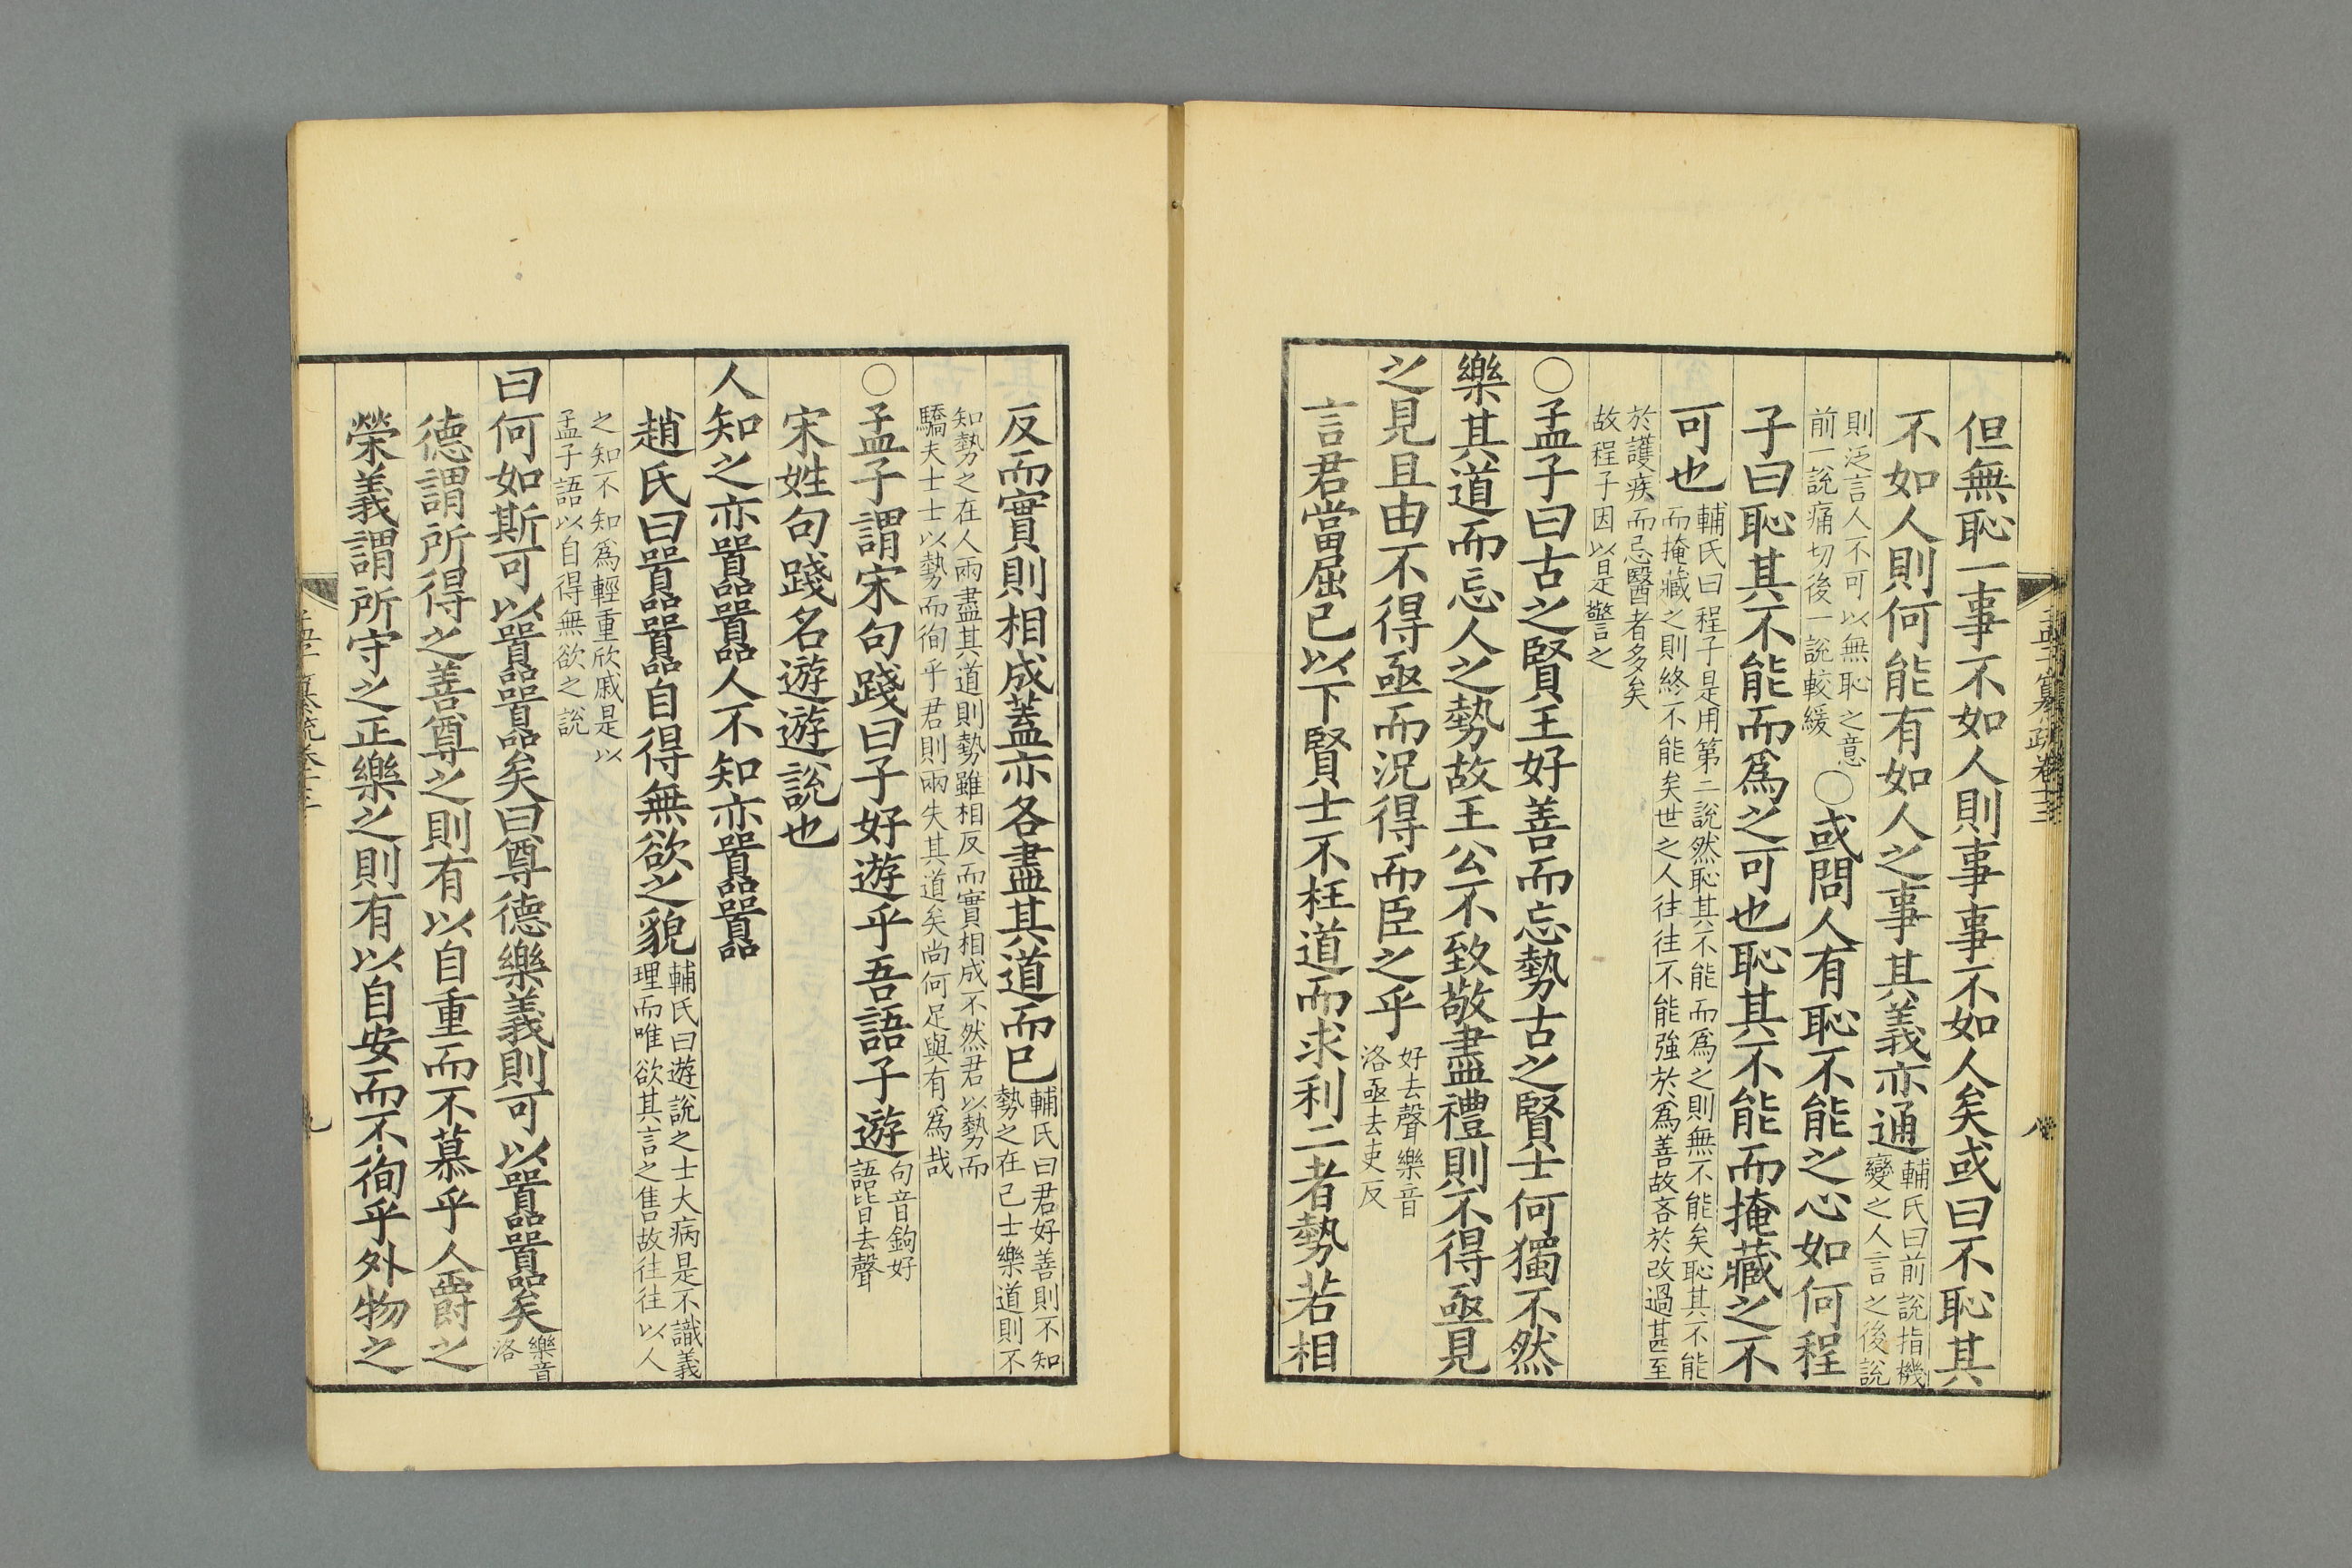 但無恥一事不如人則事事不如人矣或曰不恥其
不如人則何能有如人之事其義亦通輔氏曰前說指機變之人言之後說
則泛言人不可以無恥之意前一說痛切後一說較緩○或問人有恥不能之心如何程
子曰恥其不能而爲之可也恥其不能而掩藏之不
可也輔氏曰程子是用第二說然恥其不能而爲之則無不能矣恥其不能而掩藏之則終不能矣世之人往往不能強於爲善故吝於改過甚至
於護疾而忌醫者多矣故程子因以是警之
○孟子曰古之賢王好善而忘勢古之賢士何獨不然
樂其道而忘人之勢故王公不致敬盡禮則不得亟見
之見且由不得亟而況得而臣之乎好去聲樂音洛亟去吏反
言君當屈己以下賢士不枉道而求利二者勢若相
孟子纂疏卷十三
八
反而實則相成蓋亦各盡其道而已輔氏曰君好善則不知勢之在己士樂道則不
知勢之在人兩盡其道則勢雖相反而實相成不然君以勢而驕夫士士以勢而徇乎君則兩失其道矣尚何足與有爲哉
○孟子謂宋句踐曰子好遊乎吾語子遊句音鉤好語皆去聲
宋姓句踐名遊遊說也
人知之亦囂囂人不知亦囂囂
趙氏曰囂囂自得無欲之貌輔氏曰遊說之士大病是不識義理而唯欲其言之售故往往以人
之知不知爲輕重欣戚是以孟子語以自得無欲之說
曰何如斯可以囂囂矣曰尊德樂義則可以囂囂矣樂音洛
德謂所得之善尊之則有以自重而不慕乎人爵之
榮義謂所守之正樂之則有以自安而不徇乎外物之
孟子纂疏卷十三
九